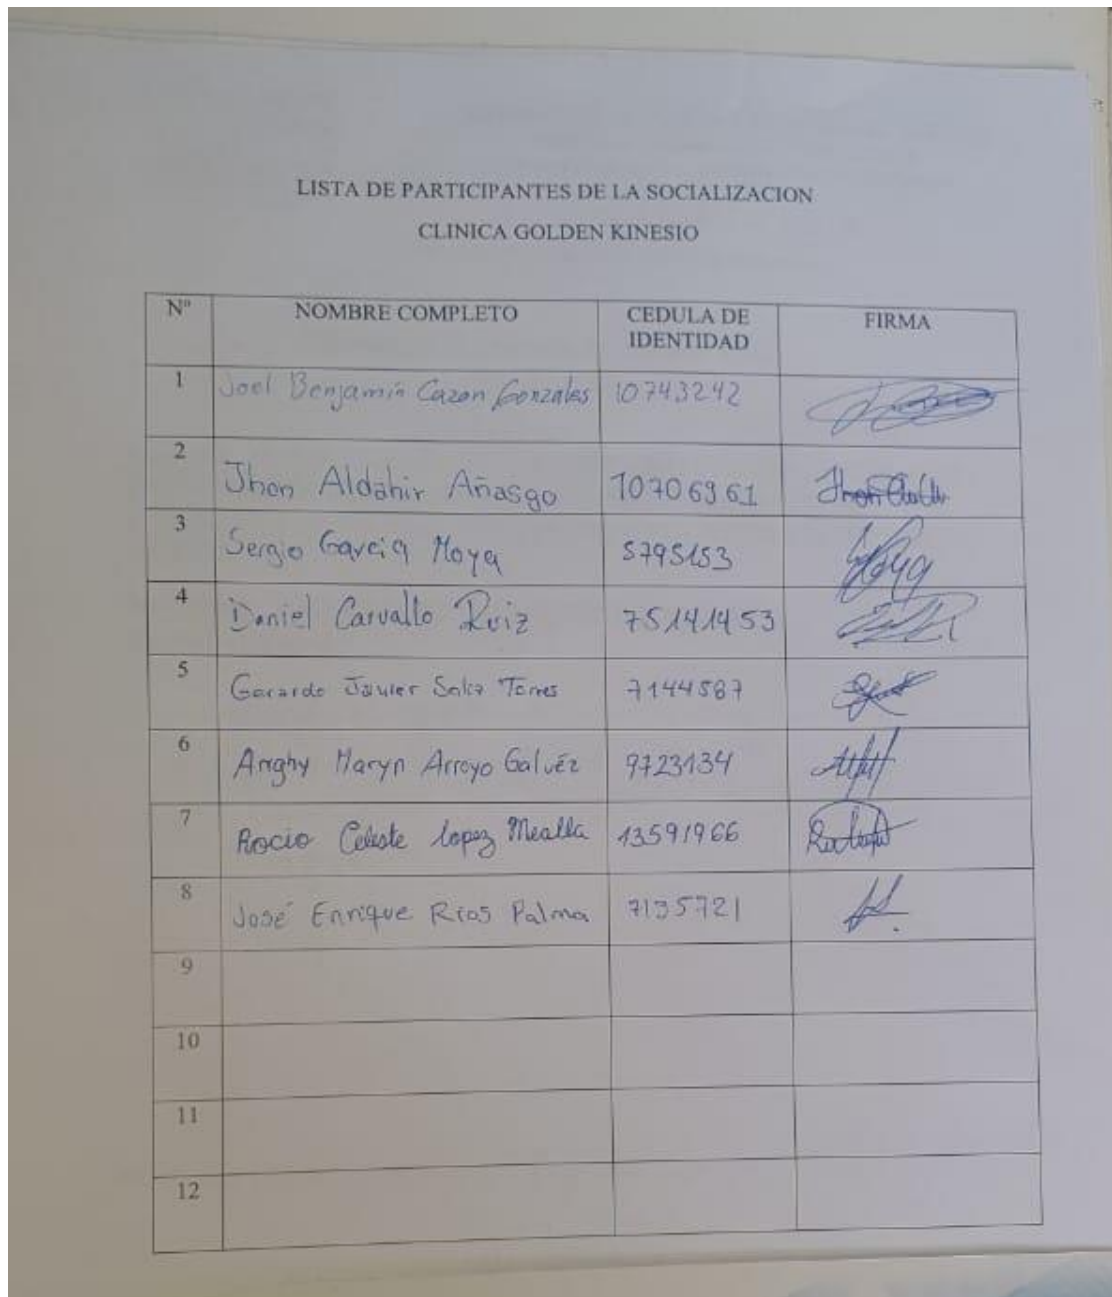 LISTA DE PARTICIPANTES DE LA SOCIALIZACION
CLINICA GOLDEN KINESIO
Nº NOMBRE COMPLETO CEDULA DE IDENTIDAD FIRMA
1 Joel Benjamin Cazon Gonzales 10743242
2 Jhon Aldahir Añasgo 10706961
3 Sergio Garcia Moya 5795153
4 Daniel Carvallo Ruiz 75141453
5 Gerardo Javier Torres 7144587
6 Anghy Maryn Arroyo Galvéz 9723134
7 Rocio Celeste lopez Mealla 13591966
8 José Enrique Rios Palma 7135721
9
10
11
12